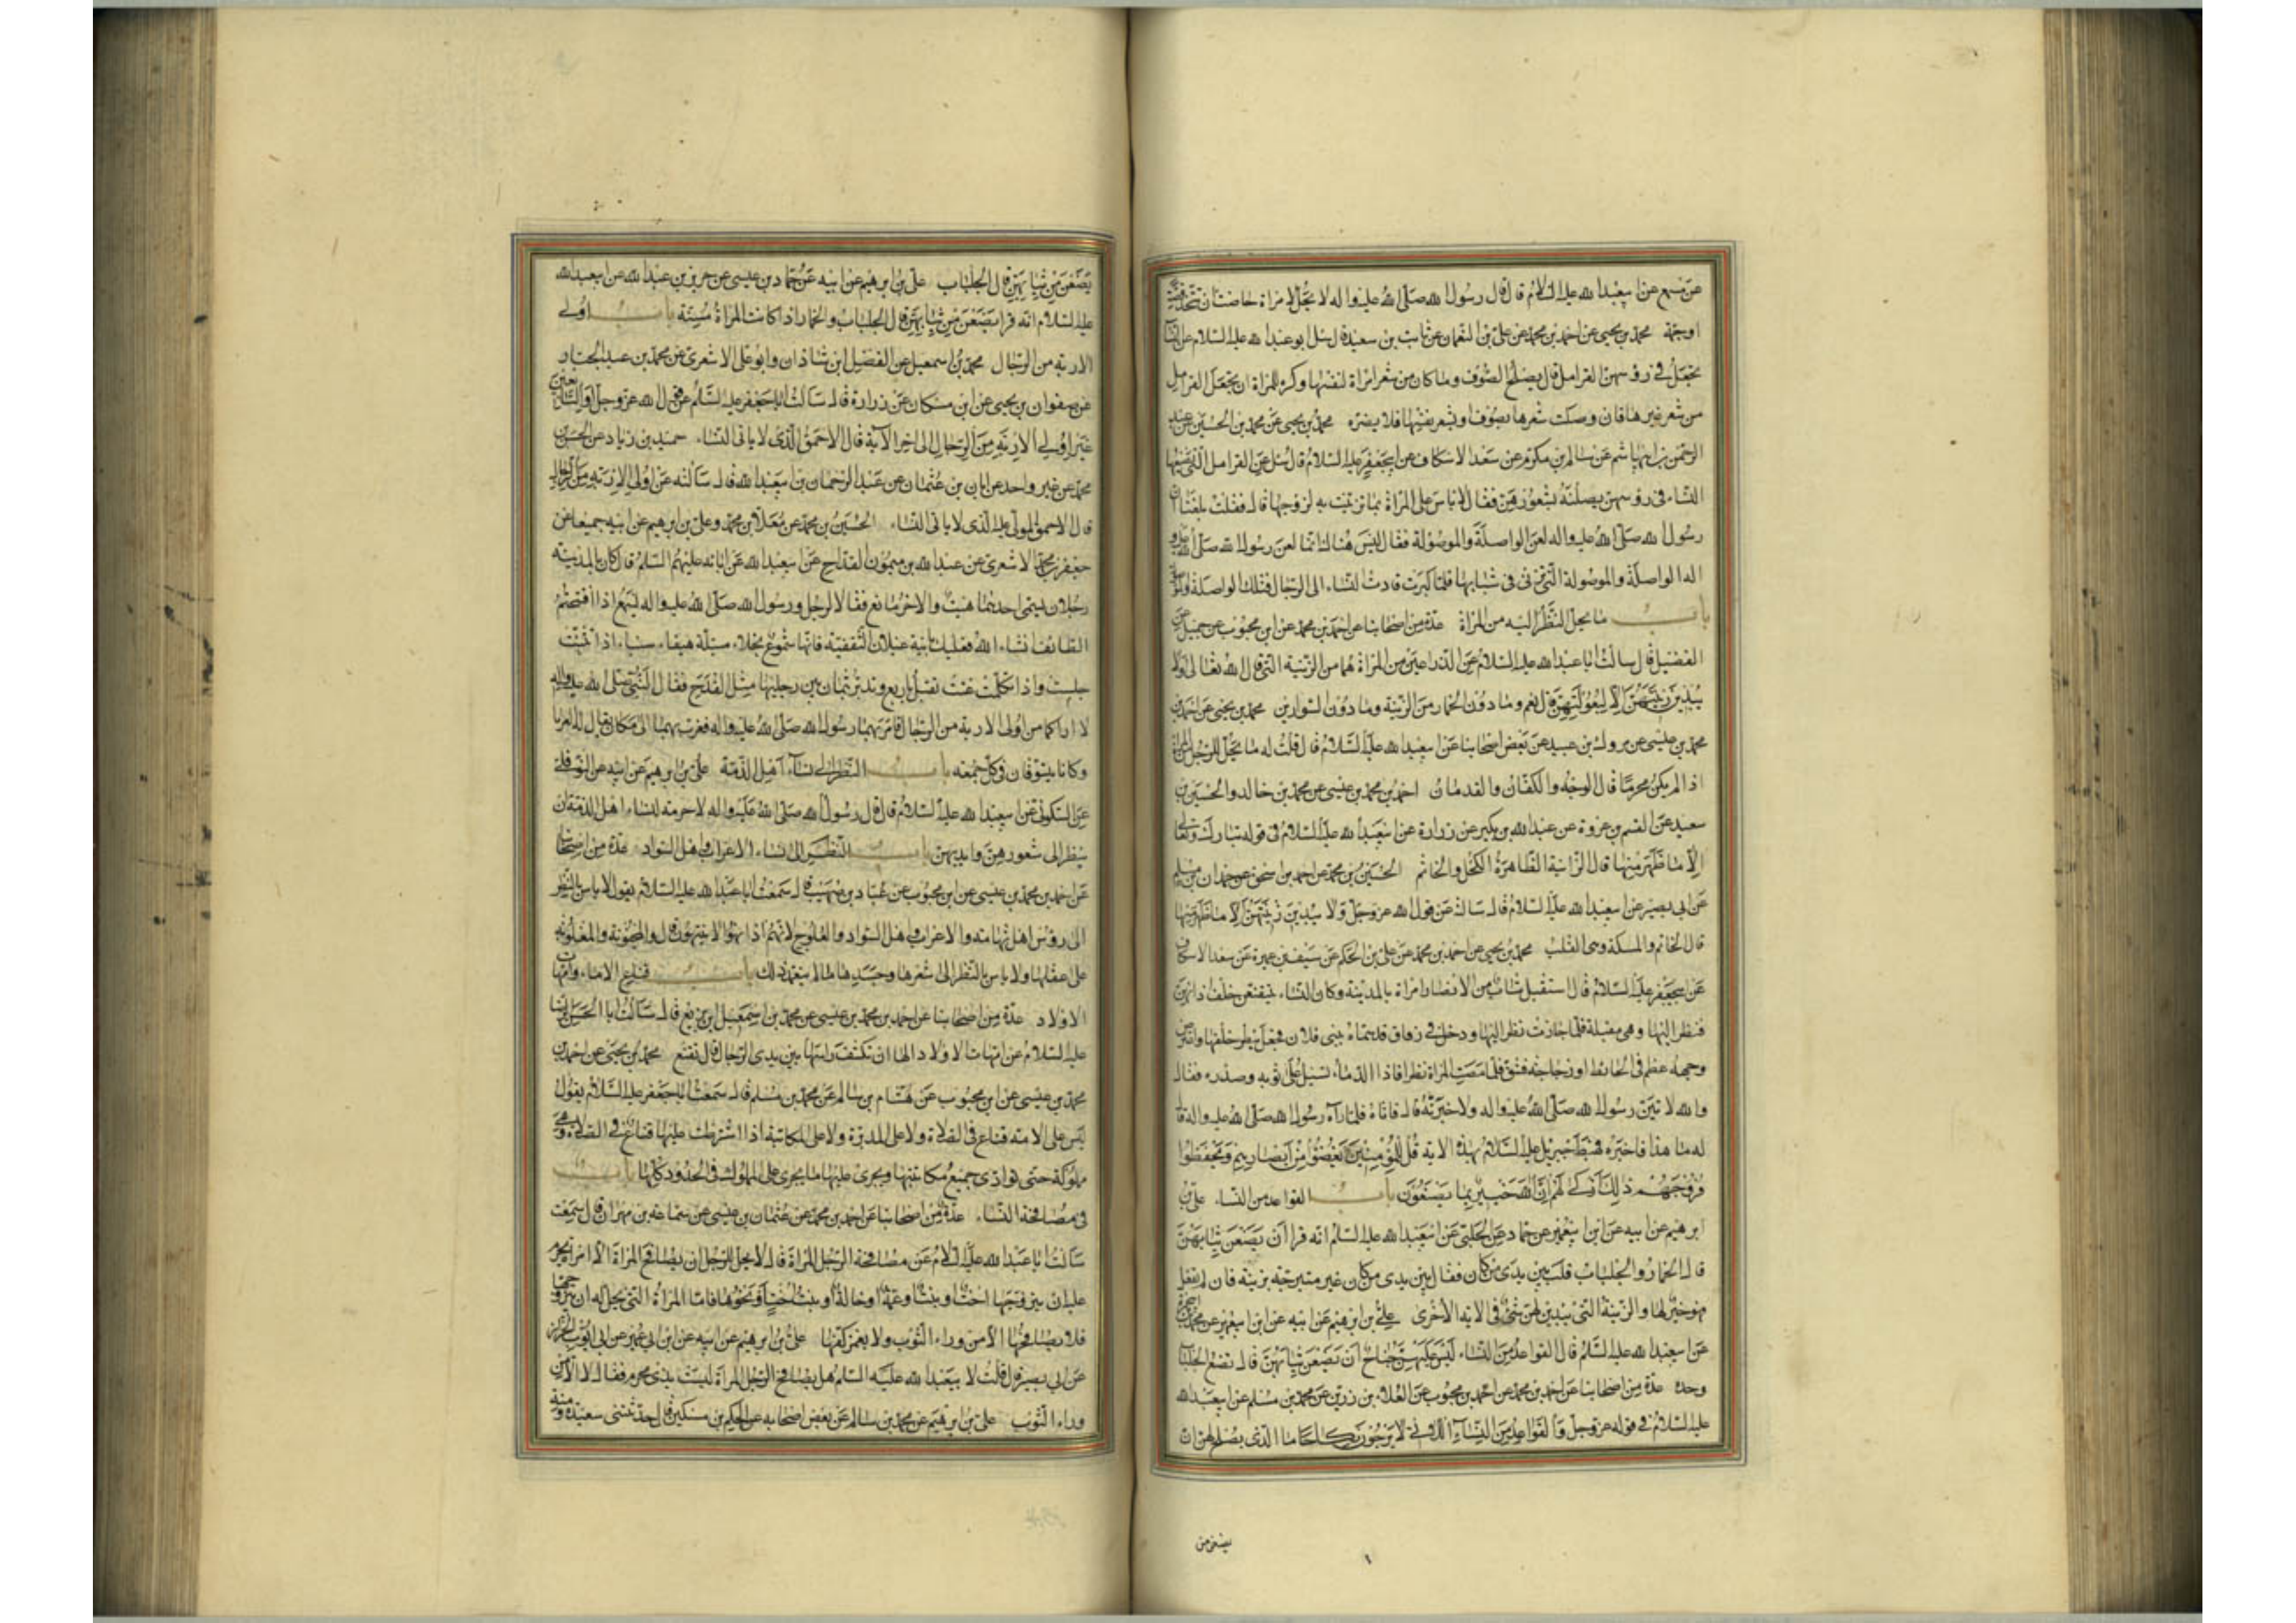 عن مسمع عن ابيعبدا لله عليه السلام قال قال رسول الله صلى الله عليه واله لا يحل لامراة حاضت ان تتخذ قصة
او جمة محمد بن يحيى عن احمد بن محمد عن على بن النعمان عن ثابت بن سعيدة قال سئل ابو عبدا لله عليه السلام عن النساء
تجعل فى رؤسهن القرامل قال يصلح الصوف وما كان من شعر امراة لنفسها وكره للمراة ان تجعل القرامل
من شعر غيرها فان وصلت شعرها بصوف او بشعر نفسها فلا يضره محمد بن يحيى عن محمد بن الحسين عن عبد
الرحمن بن ابى هاشم عن سالم بن مكرم عن سعد الاسكاف عن ابيجعفر عليه السلام قال سئل عن القرامل التى تضعها
النساء فى رؤسهن يصلنه بشعورهن فقال لا باس على المراة بما تزينت به لزوجها قال فقلت بلغنا ان
رسول الله صلى الله عليه واله لعن الواصلة والموصولة فقال ليس هنالك انما لعن رسول الله صلى الله عليه و
اله الواصلة والموصولة التى تزنى فى شبابها فلما كبرت قادت النساء الى الرجال فتلك الواصلة والموصولة
باب ما يحل النظر اليه من المراة عدة من اصحابنا عن احمد بن محمد عن ابن محبوب عن جميل عن
الفضيل قال سالت ابا عبدا لله عليه السلام عن الذراعين من المراة هما من الزينة التى قال الله تعالى ولا
يبدين زينتهن الا لبعولتهن قال نعم وما دون الخمار من الزينة وما دون السوارين محمد بن يحيى عن احمد بن
محمد بن عيسى عن مروك بن عبيد عن بعض اصحابنا عن ابيعبدا لله عليه السلام قال قلت له ما يحل للرجل من المراة
اذا لم يكن محرما قال الوجه والكفان والقدمان احمد بن محمد بن عيسى عن محمد بن خالد والحسين بن
سعيد عن القسم بن عروة عن عبدا لله بن بكير عن زرارة عن ابيعبدا لله عليه السلام فى قوله تبارك وتعالى
الا ما ظهر منها قال الزينة الظاهرة الكحل والخاتم الحسين بن محمد عن احمد بن اسحق عن سعدان بن مسلم
عن ابى بصير عن ابيعبدا لله عليه السلام قال سالته عن قول الله عز وجل ولا يبدين زينتهن الا ما ظهر منها
قال الخاتم والمسكة وهى القلب محمد بن يحيى عن احمد بن محمد عن على بن الحكم عن سيف بن عميرة عن سعد الاسكاف
عن ابيجعفر عليه السلام قال استقبل شاب من الانصار امراة بالمدينة وكان النساء يتقنعن خلف اذانهن
فنظر اليها وهى مقبلة فلما جازت نظر اليها ودخل فى زقاق قد سماه ببنى فلان فجعل ينظر خلفها واعترض
وجهه عظم فى الحائط او زجاجة فشق فلما مضت المراة نظر فاذا الدماء تسيل على ثوبه وصدره فقال
والله لاتين رسول الله صلى الله عليه واله ولاخبرنه قال فاتاه فلما راه رسول الله صلى الله عليه واله قال
له ما هذا فاخبره فهبط جبريل عليه السلام بهذه الاية قل للمؤمنين يغضوا من ابصارهم ويحفظوا
فروجهم ذلك ازكى لهم ان الله خبير بما يصنعون باب القواعد من النساء على بن
ابرهيم عن ابيه عن ابن ابيعمير عن حماد عن الحلبى عن ابيعبدا لله عليه السلام انه قرا ان يضعن ثيابهن
قال الخمار والجلباب قلت بين يدى من كان فقال بين يدى من كان غير متبرجة بزينة فان لم تفعل
فهو خير لها والزينة التى يبدين لهن شئ فى الاية الاخرى على بن ابرهيم عن ابيه عن ابن ابيعمير عن محمد بن ابى حمزة
عن ابيعبدا لله عليه السلام قال القواعد من النساء ليس عليهن جناح ان يضعن ثيابهن قال تضع الجلباب
وحده عدة من اصحابنا عن احمد بن محمد عن ابن محبوب عن العلاء بن رزين عن محمد بن مسلم عن ابيعبدا لله
عليه السلام فى قوله عز وجل والقواعد من النساء اللاتى لا يرجون نكاحا ما الذى يصلح لهن ان
يضعن من
يضعن من ثيابهن قال الجلباب على بن ابرهيم عن ابيه عن حماد بن عيسى عن حريز بن عبدا لله عن ابيعبدا لله
عليه السلام انه قرا يضعن من ثيابهن قال الجلباب والخمار اذا كانت المراة مسنة باب اولى
الاربة من الرجال محمد بن اسمعيل عن الفضل ابن شاذان وابو على الاشعرى عن محمد بن عبد الجبار
عن صفوان بن يحيى عن ابن مسكان عن زرارة قال سالت اباجعفر عليه السلام عن قول الله عز وجل او التابعين
غير اولى الاربة من الرجال الى اخر الاية قال الاحمق الذى لا ياتى النساء حميد بن زياد عن الحسن بن
محمد عن غير واحد عن ابان بن عثمان عن عبد الرحمان بن ابيعبدا لله قال سالته عن اولى الاربة من الرجال
قال الاحمق المولى عليه الذى لا ياتى النساء الحسين بن محمد عن معلا بن محمد وعلى بن ابرهيم عن ابيه جميعا عن
جعفر بن محمد الاشعرى عن عبدا لله بن ميمون القداح عن ابيعبدا لله عن ابائه عليهم السلام قال كان بالمدينة
رجلان يسمى احدهما هيت والاخر مانع فقالا لرجل ورسول الله صلى الله عليه واله يسمع اذا افتتحتم
الطائف انشاء الله فعليك بابنة غيلان الثقفية فانها شموع نجلاء مبتلة هيفاء شنباء اذا تثنت
جلست واذا تكلمت غنت تقبل باربع وتدبر بثمان بين رجليها مثل القدح فقال النبى صلى الله عليه واله
لا اراكما من اولى الاربة من الرجال فامر بهما رسول الله صلى الله عليه واله فغرب بهما الى مكان يقال له العرايا
وكانا يتسوقان فى كل جمعة باب النظر الى نساء اهل الذمة على بن ابرهيم عن ابيه عن النوفلى
عن السكونى عن ابيعبدا لله عليه السلام قال قال رسول الله صلى الله عليه واله لا حرمة لنساء اهل الذمة ان
ينظر الى شعورهن وايديهن باب النظر الى نساء الاعراب واهل السواد عدة من اصحابنا
عن احمد بن محمد بن عيسى عن ابن محبوب عن عباد بن صهيب قال سمعت ابا عبدا لله عليه السلام يقول لا باس بالنظر
الى رؤس اهل تهامه والاعراب واهل السواد والعلوج لانهم اذا نهوا لا ينتهون قال والمجنونة والمغلوبة
على عقلها ولا باس بالنظر الى شعرها وجسدها ما لم يتعمد ذلك باب قناع الاماء وامهات
الاولاد عدة من اصحابنا عن احمد بن محمد بن عيسى عن محمد بن اسمعيل ابن بزيع قال سالت ابا الحسن الرضا
عليه السلام عن امهات الاولاد الها ان تكشف راسها بين يدى الرجال قال تقنع محمد بن يحيى عن احمد بن
محمد بن عيسى عن ابن محبوب عن هشام بن سالم عن محمد بن مسلم قال سمعت اباجعفر عليه السلام يقول
ليس على الامة قناع فى الصلاة ولا على المدبرة ولا على المكاتبة اذا اشترطت عليها قناع فى الصلاة وهى
مملوكة حتى تؤدى جميع مكاتبتها ويجرى عليها ما يجرى على المملوك فى الحدود كلها باب
فى مصافحة النساء عدة من اصحابنا عن احمد بن محمد عن عثمان بن عيسى عن سماعة بن مهران قال سمعت
سالت ابا عبدا لله عليه السلام عن مصافحة الرجل المراة قال لا يحل للرجل ان يصافح المراة الا امراة يحرم
عليه ان يتزوجها اخت او بنت او عمة او خالة او بنت اخت او نحوها فاما المراة التى يحل له ان يتزوجها
فلا يصافحها الا من وراء الثوب ولا يغمز كفها على بن ابرهيم عن ابيه عن ابن ابى عمير عن ابى ايوب الخزاز
عن ابى بصير قال قلت لابيعبدا لله عليه السلام هل يصافح الرجل المراة ليست بذى محرم فقال لا الا من
وراء الثوب على بن ابرهيم عن محمد بن سالم عن بعض اصحابه عن الحكم بن مسكين قال حدثتنى سعيدة ومنة